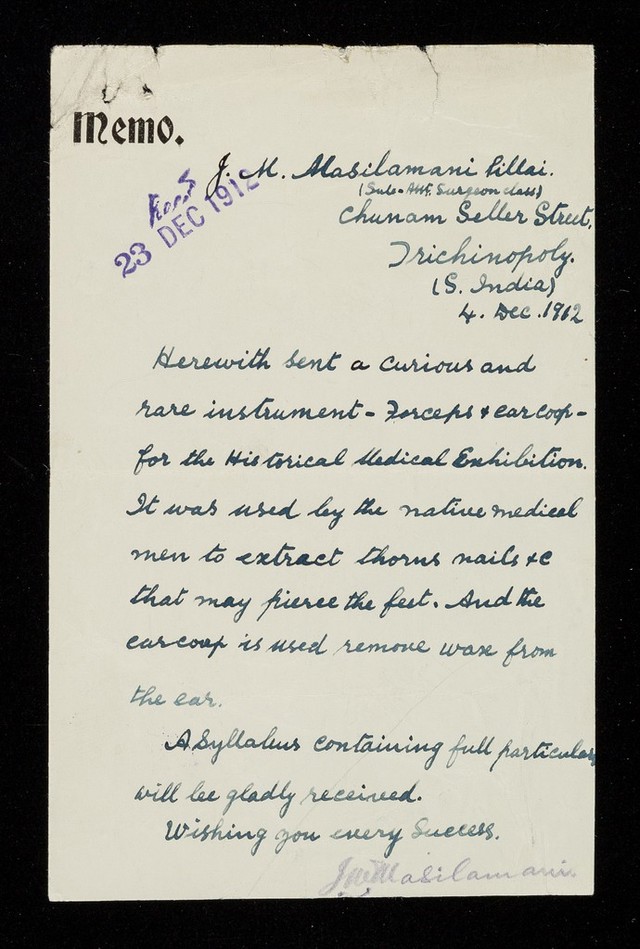 Memo.
J. M. Masilamani Pillai.
(Sub-Asst. Surgeon class)
Chunam Seller Street,
Trichinopoly.
(S. India)
4. Dec. 1912
Recd
23 DEC 1912
Herewith sent a curious and
rare instrument - Forceps & ear coop -
for the Historical Medical Exhibition.
It was used by the native medical
men to extract thorns nails &c
that may pierce the feet. And the
earcoop is used remove wax from
the ear.
A Syllabus containing full particulars
will be gladly received.
Wishing you every Success.
J M Masilamani.